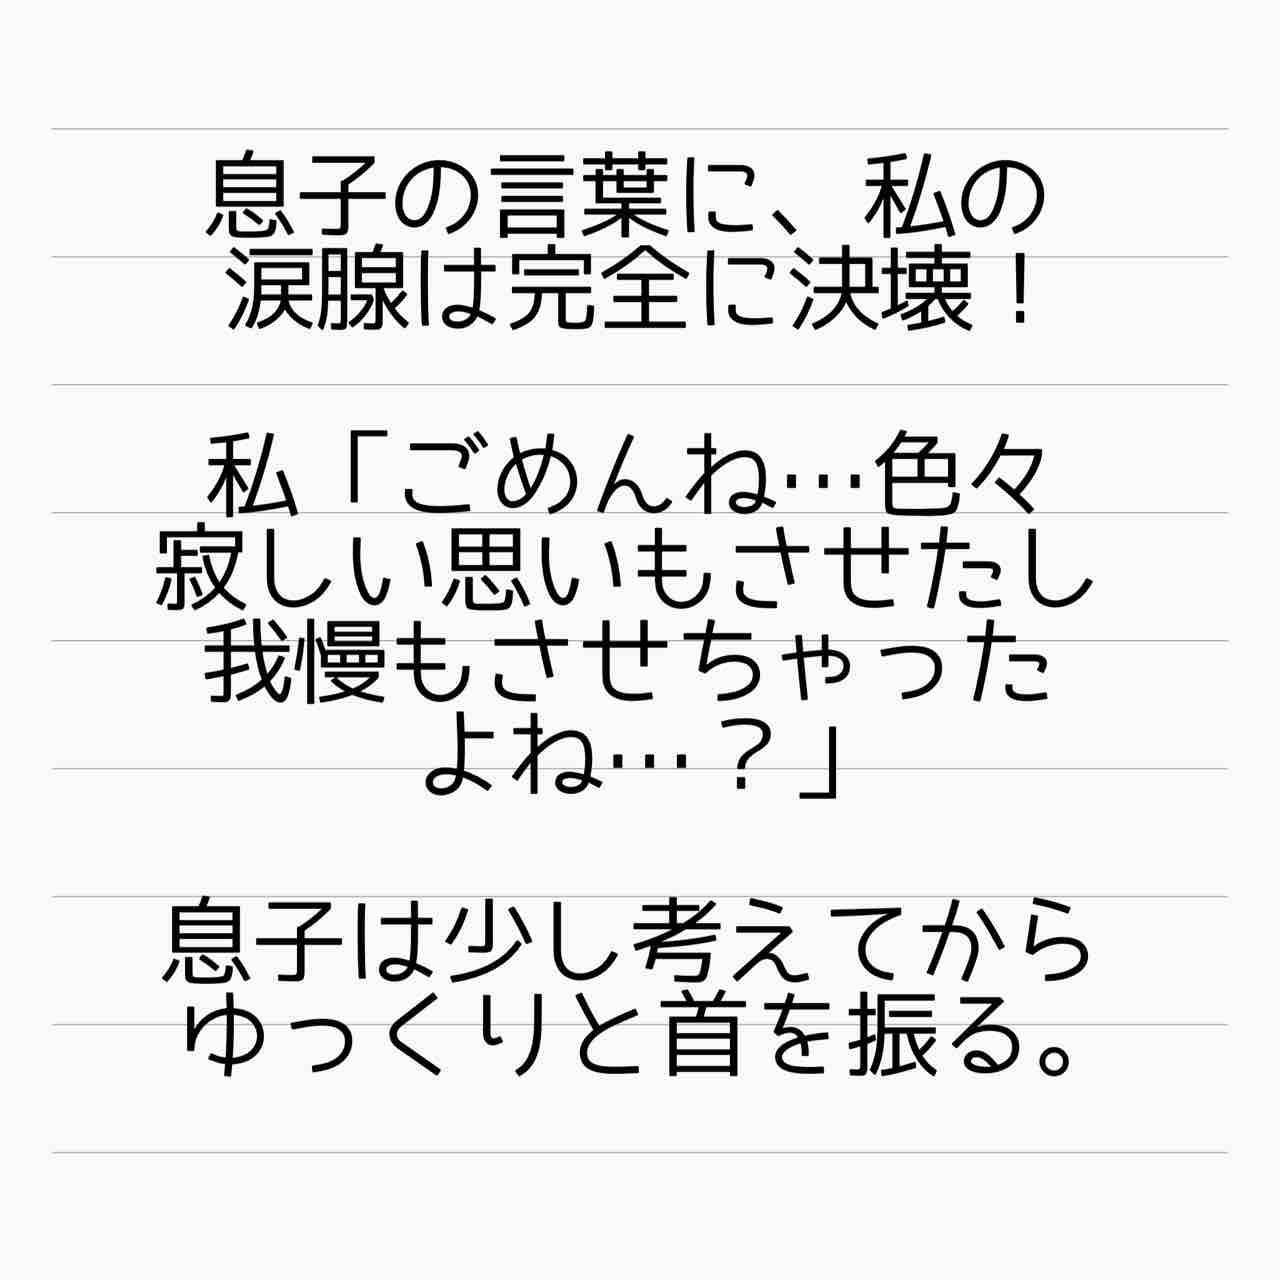 息子の言葉に、私の
涙腺は完全に決壊！
私「ごめんね…色々
寂しい思いもさせたし
我慢もさせちゃった
よね…？」
息子は少し考えてから
ゆっくりと首を振る。